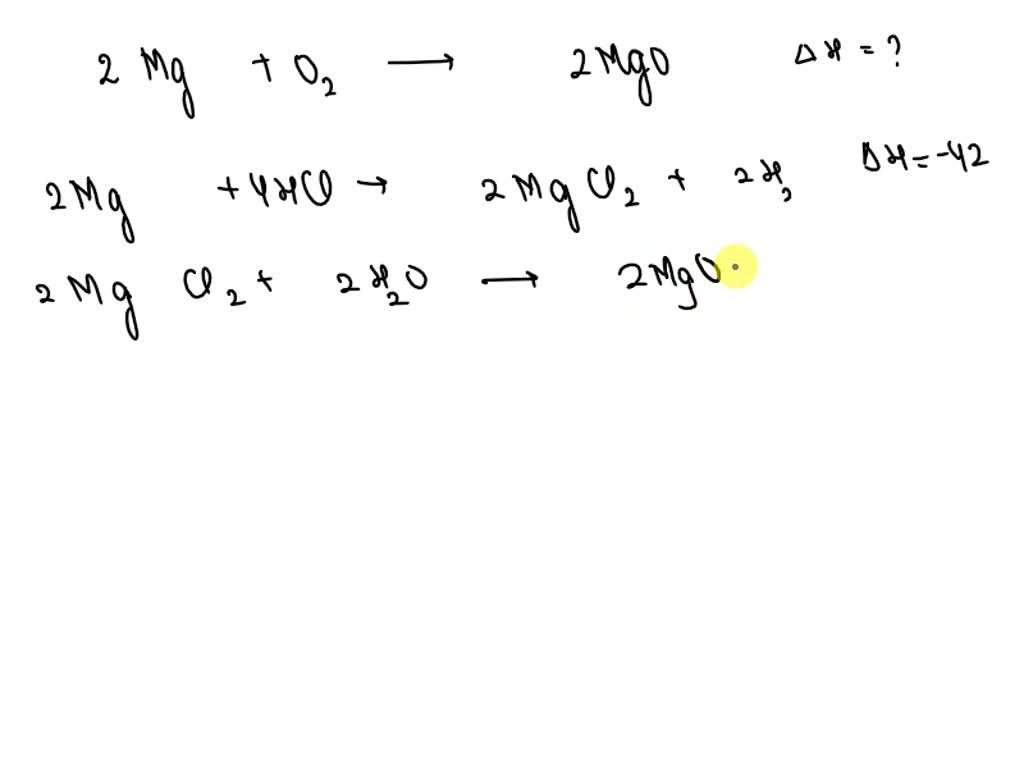 2 Mg + O₂ → 2MgO ΔH = ?
2Mg + 4HCl → 2MgCl₂ + 2H₂ ΔH = -42
2MgCl₂ + 2H₂O → 2MgO